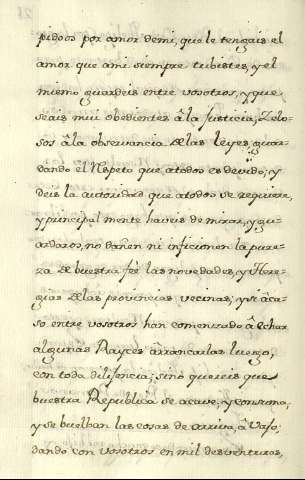 pidoos por amor demi, que le tengais el
amor que ami siempre tubistes, y el
mismo guardeis entre vosotros, y que
seais mui obedientes â la Justicia, Zelo-
sos â la observancia de las leyes, guar-
dando el Respeto que atodos es devido; y
deis la autoridad que atodos se requiere,
y principal mente haveis de mirar, y gu-
ardaros, no dañan ni inficionen la pure-
za de buestra feé las novedades, y Here-
gias de las provincias vecinas; y si âca-
so entre vosotros han comenzado â echar
algunas Rayces arrancarlas luego,
con toda dilijencia; sino quereis que
buestra Republica se acave, y consuma,
y se buelban las cosas de arriva, â vajo,
dando con vosotros en mil desventuras,